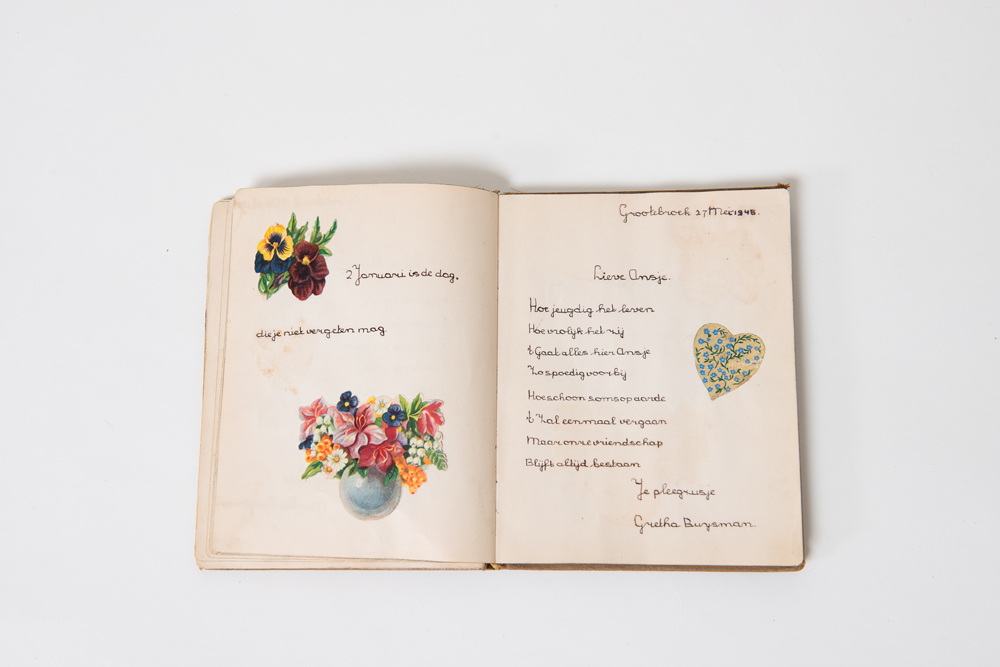 2 Januari is de dag.
die je niet vergeten mag
Grootebroek 27 Mei 1945.
Lieve Ansje.
Hoe jeugdig het leven
Hoe vrolijk het zij
't Gaat alles hier Ansje
Zo spoedig voorbij
Hoe schoon soms op aarde
't Zal eenmaal vergaan
Maar onze vriendschap
Blijft altijd bestaan
Je pleegzusje
Gretha Buysman.